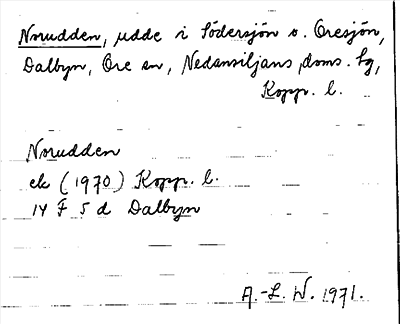 Norudden, udde i Södersjön o. Oresjön,
Dalbyn, Ore sn, Nedansiljans doms. fg,
Kopp. l.
Norudden
ek (1970) Kopp. l.
14 F 5 d Dalbyn
A.-L. W. 1971.